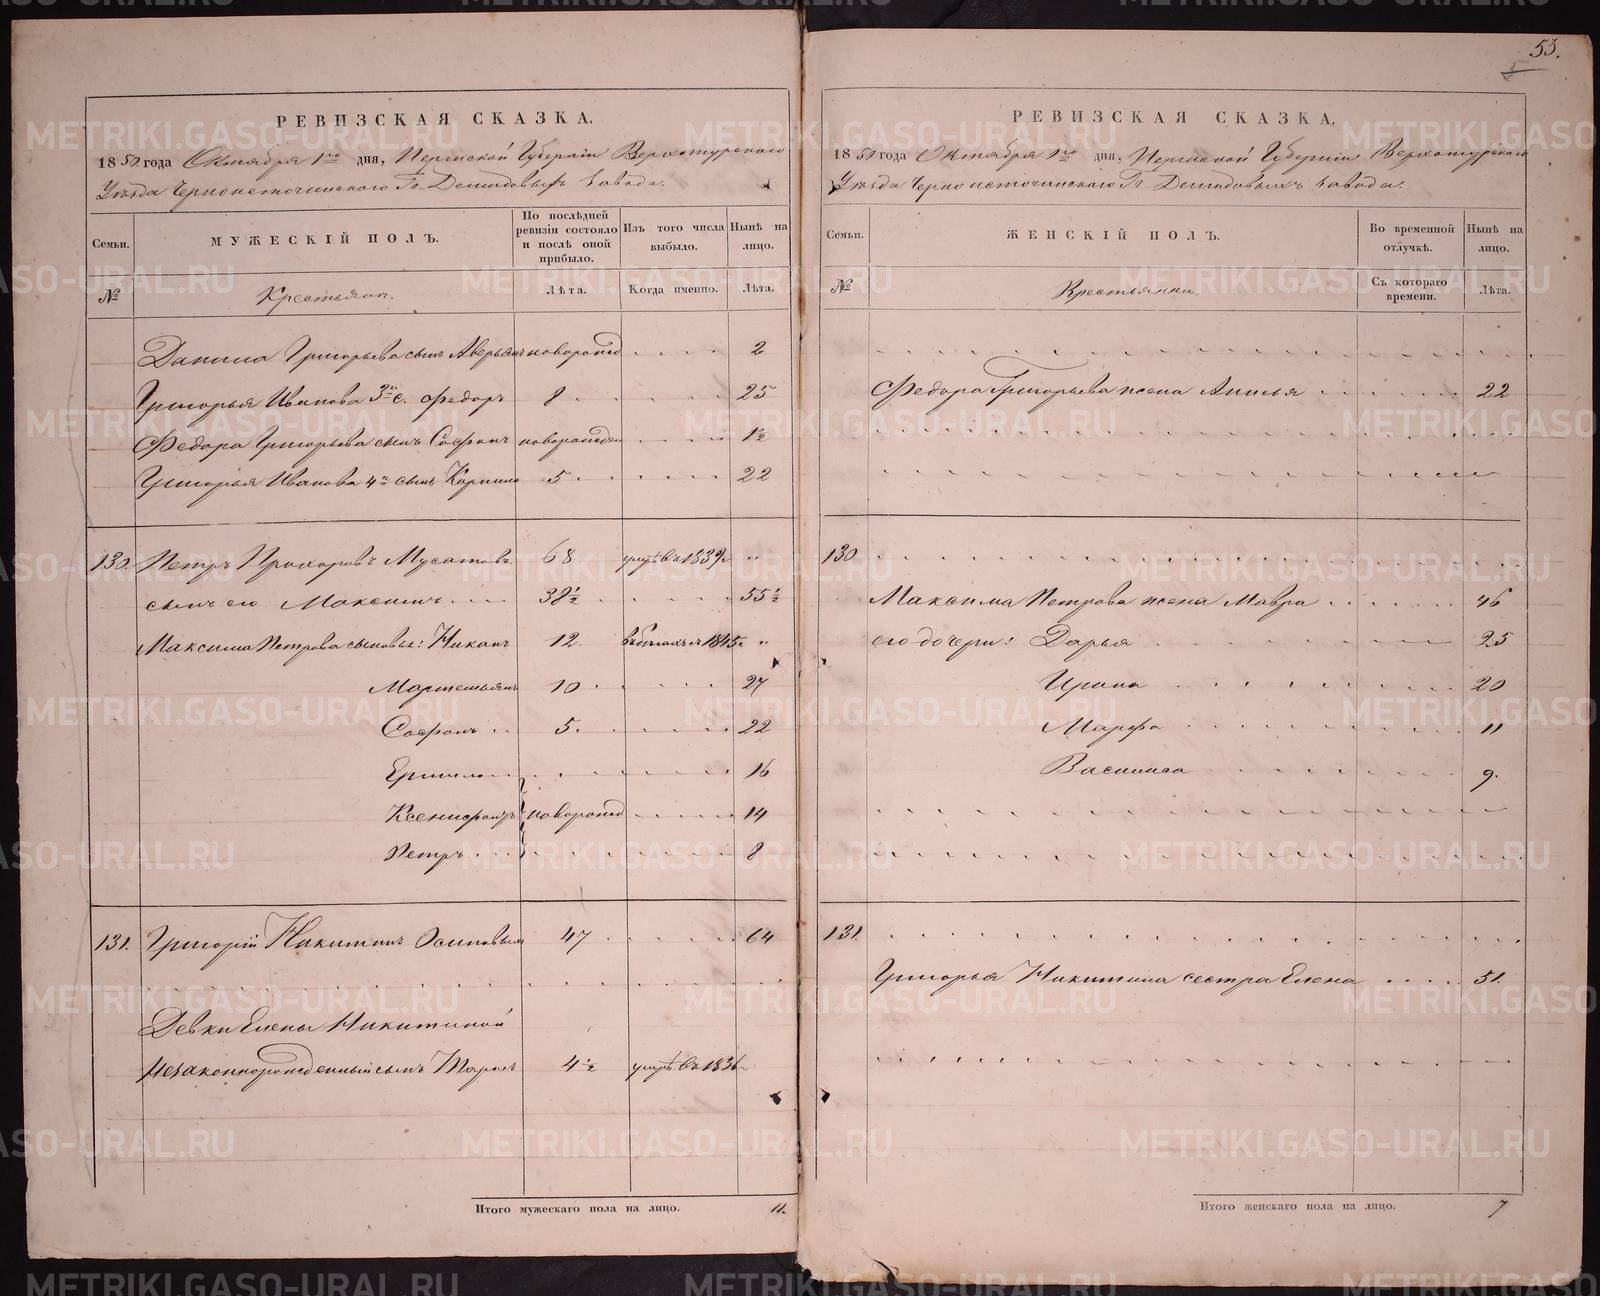 53.
РЕВИЗСКАЯ СКАЗКА.
1850 года Октября 1го дня, Пермской Губерніи Верхотурскаго
Уѣзда Черноисточинскаго Гг. Демидовыхъ завода.
Семьи. МУЖЕСКІЙ ПОЛЪ. По послѣдней ревизіи состояло и послѣ оной прибыло. Изъ того числа выбыло. Нынѣ на лицо.
№ Крестьяне. Лѣта. Когда именно. Лѣта.
Данила Григорьева сынъ Аверьянъ новорожд 2
Григорья Иванова 3й с. Федоръ 8 25
Федора Григорьева сынъ Софронъ новорожден 1½
Григорья Иванова 4й сынъ Корнило 5 22
130. Петръ Прохоровъ Мусатовъ 68 умрѣ въ 1839г ..
сынъ его Максимъ 38½ 55½
Максима Петрова сыновья: Никанъ 12. въ бѣгахъ съ 1845. ..
Мартемьянъ 10 27
Софронъ 5. 22
Ермило 16
Ксенифонтъ новорожд 14
Петръ 8
131. Григорій Никитинъ Осиповых 47 64
Девки Елены Никитиной
Незаконнорожденный сынъ Тарасъ 4½ умрѣ въ 1836г
Итого мужескаго пола на лицо. 11.
РЕВИЗСКАЯ СКАЗКА.
1850 года Октября 1го дня, Пермской Губерніи Верхотурскаго
Уѣзда Черноисточинскаго Гг Демидовыхъ завода.
Семьи. ЖЕНСКІЙ ПОЛЪ. Во временной отлучкѣ. Нынѣ на лицо.
№ Крестьянки. Съ котораго времени. Лѣта.
Федора Григорьева жена Апилья 22
130
Максима Петрова жена Мавра 46
его дочери: Дарья 25
Ирина 20
Марфа 11
Василиса 9.
131
Григорья Никитина сестра Елена 51.
Итого женскаго пола на лицо. 7
METRIKI.GASO-URAL.RU